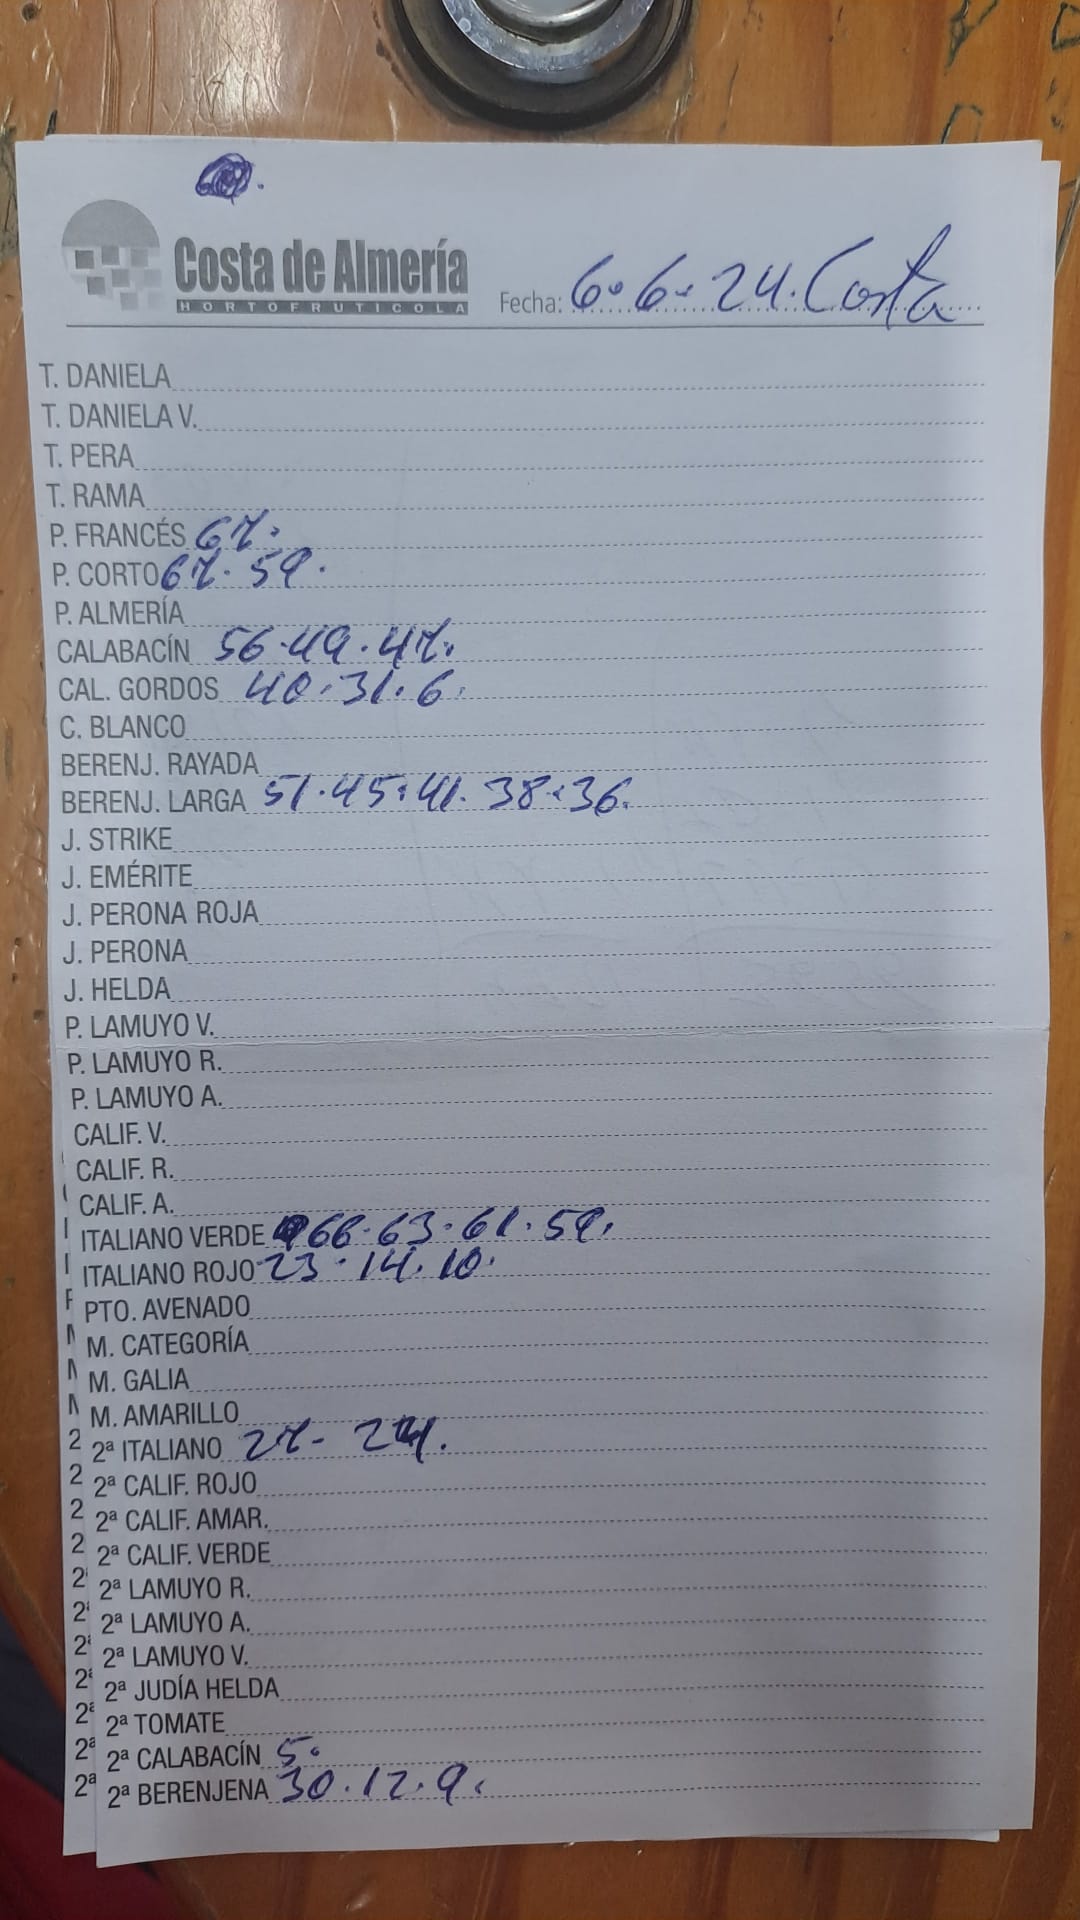 Costa de Almería
HORTOFRUTICOLA
Fecha: 6.6.24. Costa
T. DANIELA
T. DANIELA V.
T. PERA
T. RAMA
P. FRANCÉS 67.
P. CORTO 67. 59.
P. ALMERÍA
CALABACÍN 56.49.47.
CAL. GORDOS 40.31.6.
C. BLANCO
BERENJ. RAYADA
BERENJ. LARGA 51.45.41.38.36.
J. STRIKE
J. EMÉRITE
J. PERONA ROJA
J. PERONA
J. HELDA
P. LAMUYO V.
P. LAMUYO R.
P. LAMUYO A.
CALIF. V.
CALIF. R.
CALIF. A.
ITALIANO VERDE 66.63.61.59.
ITALIANO ROJO 23.14.10.
PTO. AVENADO
M. CATEGORÍA
M. GALIA
M. AMARILLO
2ª ITALIANO 27- 24.
2ª CALIF. ROJO
2ª CALIF. AMAR.
2ª CALIF. VERDE
2ª LAMUYO R.
2ª LAMUYO A.
2ª LAMUYO V.
2ª JUDÍA HELDA
2ª TOMATE
2ª CALABACÍN 5.
2ª BERENJENA 30.12.9.